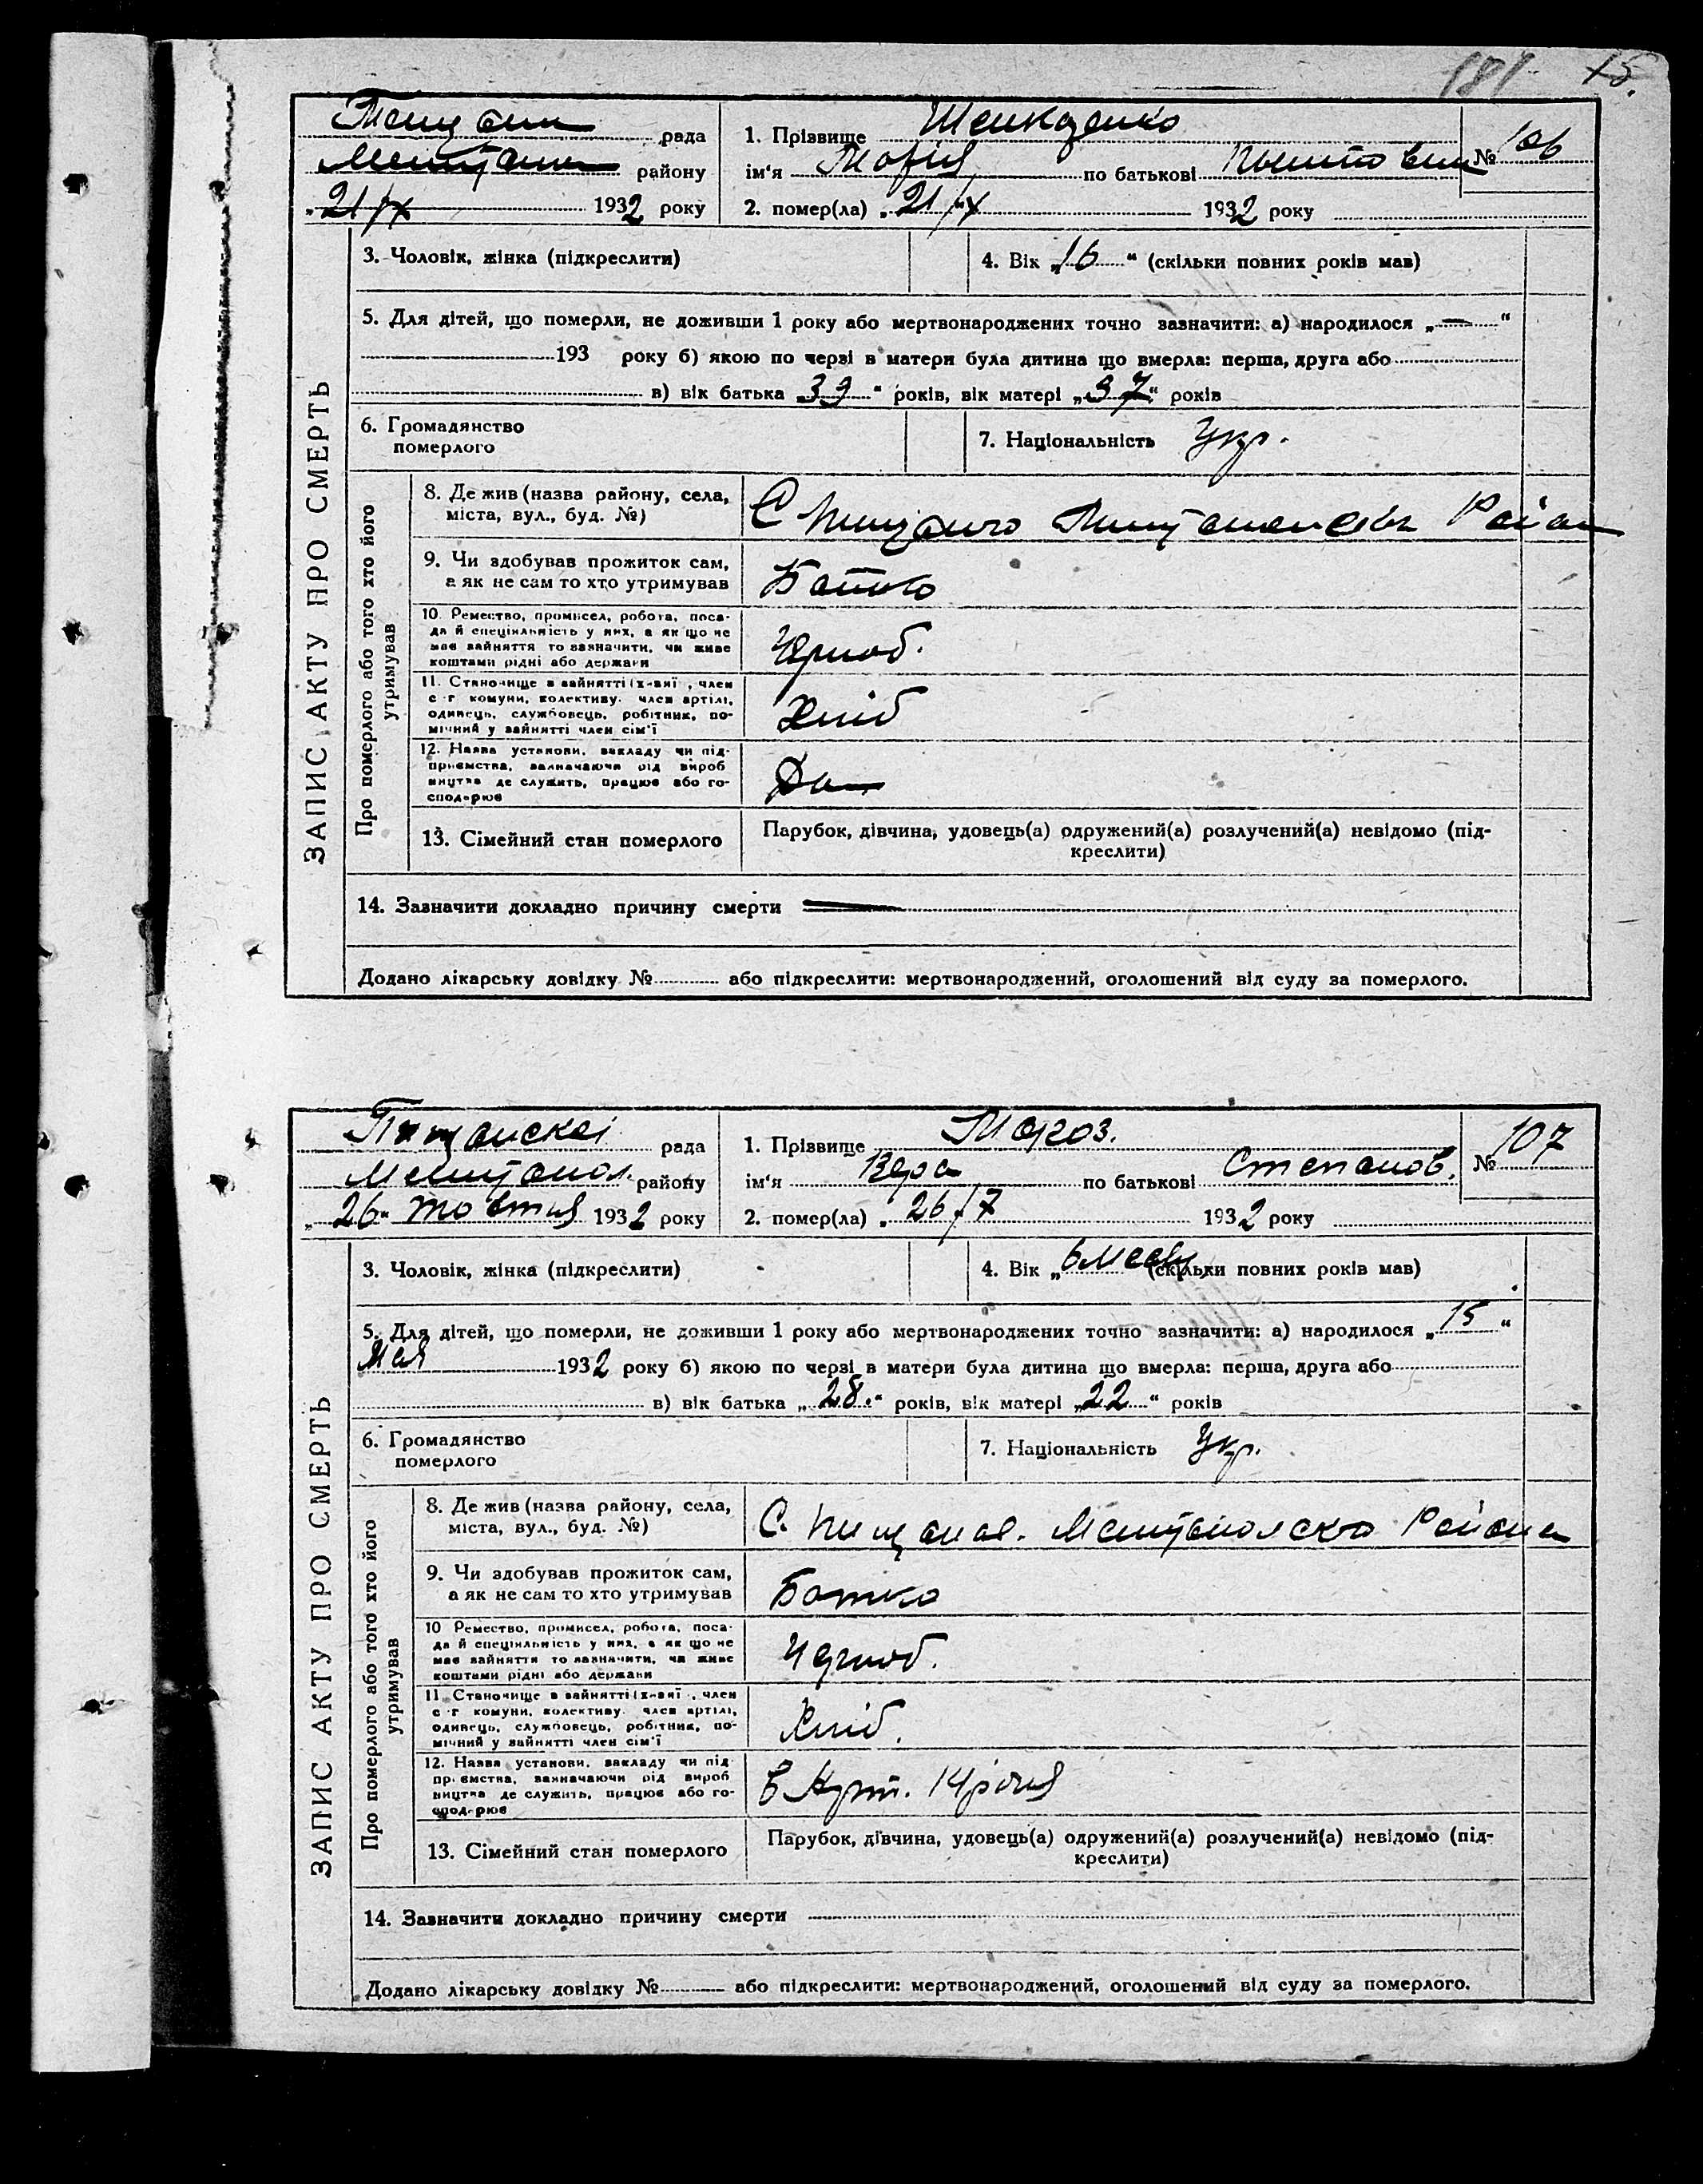 181 15.
рада
району
21/X 1932 року
1. Прізвище
ім'я Марія по батькові
№ 106
2. помер(ла) „21/X 1932 року
ЗАПИС АКТУ ПРО СМЕРТЬ
3. Чоловік, жінка (підкреслити)
4. Вік „16“ (скільки повних років мав)
5. Для дітей, що померли, не доживши 1 року або мертвонароджених точно зазначити: а) народилося „—“
193 року б) якою по черзі в матери була дитина що вмерла: перша, друга або
в) вік батька „39“ років, вік матері „37“ років
6. Громадянство
померлого
7. Національність Укр.
Про померлого або того хто його
утримував
8. Де жив (назва району, села,
міста, вул., буд. №)
С Район
9. Чи здобував прожиток сам,
а як не сам то хто утримував
Батько
10. Ремество, промисел, робота, поса-
да й спеціяльність у них, а як що не
має зайняття то зазначити, чи живе
коштами рідні або держави
Чорноб.
11. Становище в зайнятті (х-вяї , член
с-г комуни, колективу. член артілі,
одинець, службовець, робітник, по-
мічний у зайнятті член сім'ї
Хліб
12. Назва установи, закладу чи під-
приємства, зазначаючи рід вироб
ництва де служить, працює або го-
сподарює
13. Сімейний стан померлого
Парубок, дівчина, удовець(а) одружений(а) розлучений(а) невідомо (під-
креслити)
14. Зазначити докладно причину смерти —
Додано лікарську довідку № або підкреслити: мертвонароджений, оголошений від суду за померлого.
Пищанскої рада
Мелитопол. району
„26“ Товтня 1932 року
1. Прізвище Мороз.
ім'я Вера по батькові Степанов.
№ 107
2. помер(ла) „26/7 1932 року
ЗАПИС АКТУ ПРО СМЕРТЬ
3. Чоловік, жінка (підкреслити)
4. Вік „6 (скільки повних років мав)
5. Для дітей, що померли, не доживши 1 року або мертвонароджених точно зазначити: а) народилося „15“
Мая 1932 року б) якою по черзі в матери була дитина що вмерла: перша, друга або
в) вік батька „28.“ років, вік матері „22“ років
6. Громадянство
померлого
7. Національність Укр.
Про померлого або того хто його
утримував
8. Де жив (назва району, села,
міста, вул., буд. №)
С. Пищаное. Мелитопольско Района
9. Чи здобував прожиток сам,
а як не сам то хто утримував
Батько
10 Ремество, промисел, робота, поса-
да й спеціяльність у них, а як що не
має зайняття то зазначити, чи живе
коштами рідні або держави
Чорноб.
11 Становище в зайнятті (х-вяї , член
с-г комуни, колективу. член артілі,
одинець, службовець, робітник, по-
мічний у зайнятті член сім'ї
Хліб.
12. Назва установи, закладу чи під
приємства, зазначаючи рід вироб
ництва де служить, працює або го-
сподарює
в Арт.
13. Сімейний стан померлого
Парубок, дівчина, удовець(а) одружений(а) розлучений(а) невідомо (під-
креслити)
14. Зазначити докладно причину смерти
Додано лікарську довідку № або підкреслити: мертвонароджений, оголошений від суду за померлого.